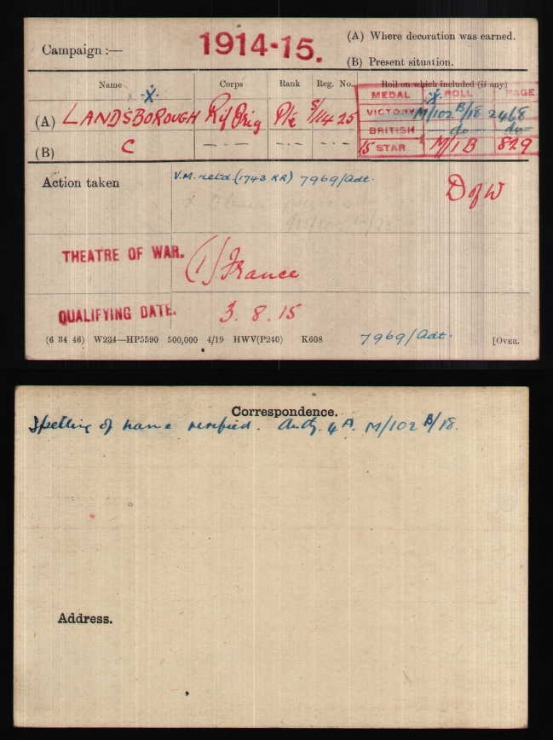 Campaign :—
1914-15.
(A) Where decoration was earned.
(B) Present situation.
Name Corps Rank Reg. No. Roll on which included (if any)
MEDAL ROLL PAGE
(A) LANDSBOROUGH Rif Brig Pte S/1425 VICTORY M/102 B/18 2468
BRITISH do do
(B) C 15 STAR M/1 B 829
Action taken V.M. retd. (1743 KR) 7969/Adt. D of W
THEATRE OF WAR. (1) France
QUALIFYING DATE. 3.8.15
(6 34 46) W234—HP5590 500,000 4/19 HWV(P240) K608 7969/Adt. [OVER.
Correspondence.
Spelling of name verified. M/102 B/18.
Address.